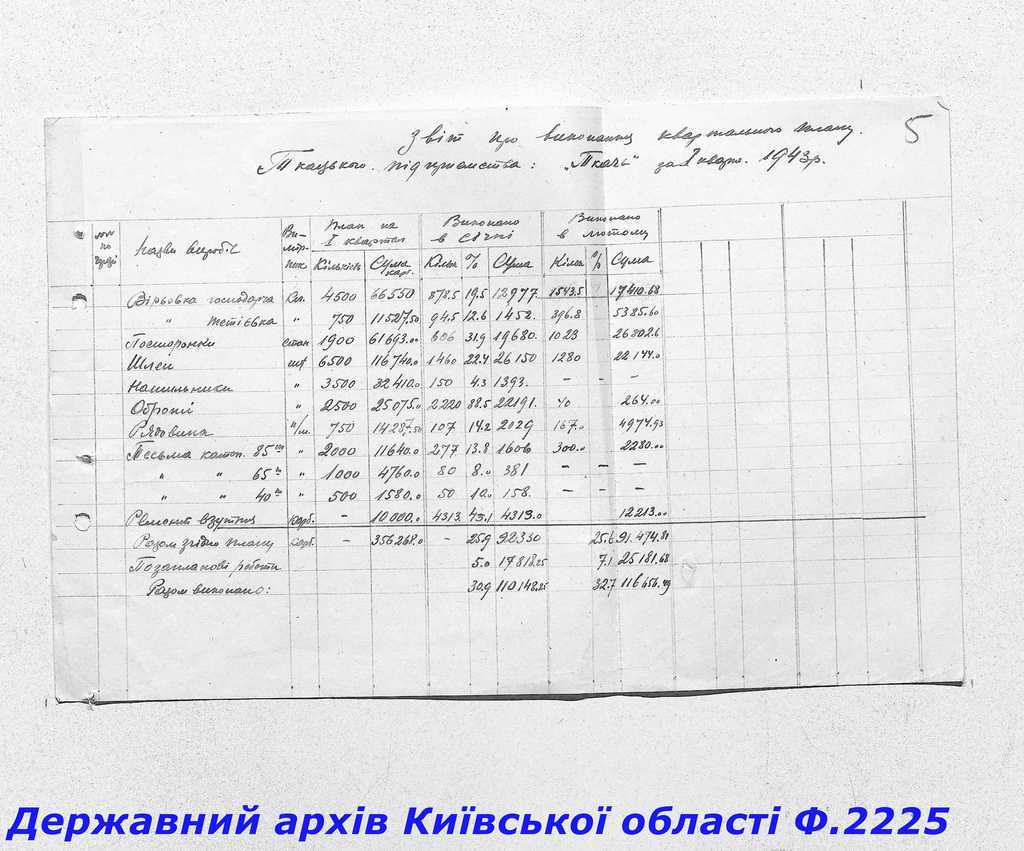 5
Звіт про виконання квартального плану
Ткацького підприємства: „Ткач“ за I кварт. 1943р.
по Назви виробів Ви- План на Виконано Виконано
I квартал в січні в лютому
Кількість Сума карб. Кільк % Сума Кільк % Сума
Вірьовка господарча 4500 66550 878.5 19.5 12977. 1543.5 17410.68
" " 750 11527.50 94.5 12.6 1452. 396.8 5385.60
Посторонки 1900 61693.00 606 31.9 19680. 1023 26302.6
Шлеи шт 6500 116740.0 1460 22.4 26150 1280 22144.0
Нашильники " 3500 32410.0 150 4.3 1393. – – –
Оброті " 2500 25075.0 2220 88.5 22191. 40 264.00
Рядовина п/м. 750 14287.50 107 14.2 2029 167.0 4974.93
Тесьма 85 " 2000 11640.0 277 13.8 1606 300.0 2280.00
" " 65 " 1000 4760.0 80 8.0 381 – – –
" " 40 " 500 1580.0 50 10.0 158. – – –
Ремонт взуття карб. – 10000.0 4313. 43.1 4313.0 12213.00
Разом згідно плану карб. – 356268.0 – 25.9 92330 25.6 91.474.81
Позапланові роботи 5.0 17818.25 7.1 25181.68
Разом виконано: 30.9 110148.25 32.7 116656.49
Державний архів Київської області Ф.2225